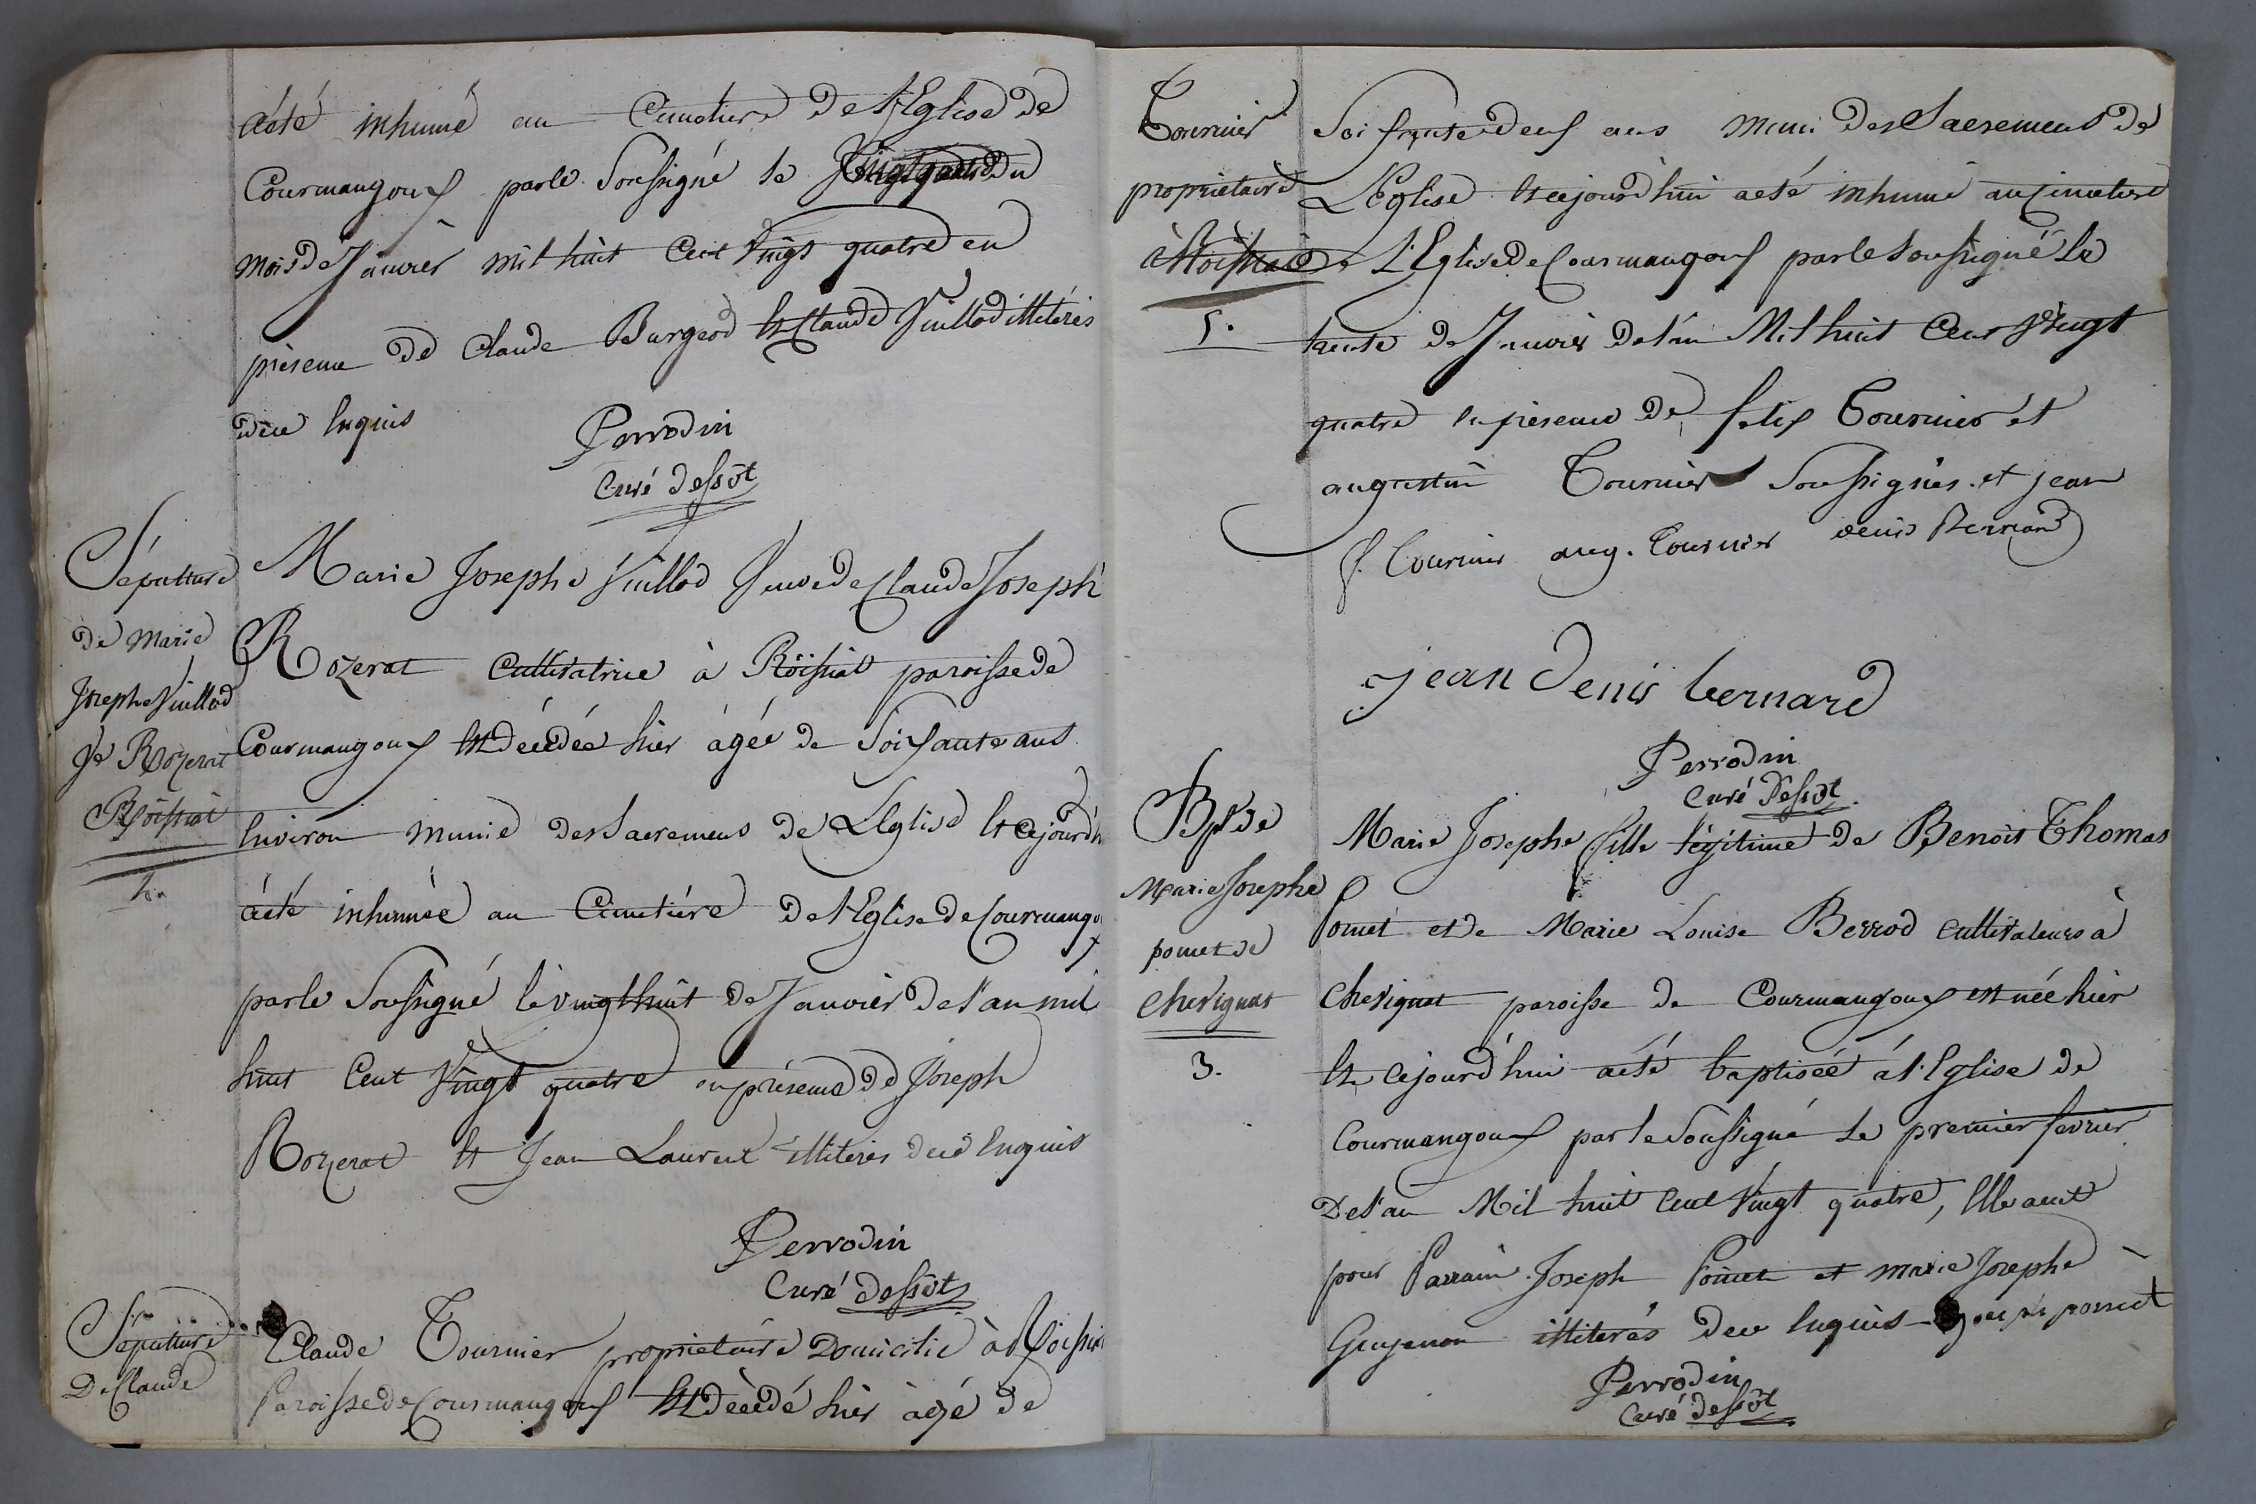 aété inhumé au Cimetiere De l'Eglise de
Courmangoux par le Soussigné le Vingt quatre du
mois de Janvier mil huit Cent Vingt quatre en
présence de Claude Burgeod Et Claude Vuillod illitérés
dece Enquis
Perrodin
Curé dessôt
Sépulture
de Marie
Josephe Vuillod
Ve Rozerat
à Roissiat
4.
Marie Josephe Vuillod Veuve de Claude Joseph
Rozerat Cultivatrice à Roissiat paroisse de
Courmangoux Est décédée hier âgée de Soixante ans
Environ munie des Sacremens de L'Eglise Et cejourd'h
aété inhumée au Cimetiére De l'Eglise de Courmangoux
par le Soussigné le vingt huit de Janvier de l'an mil
huit Cent Vingt quatre en présence de Joseph
Rozerat Et Jean Laurent illiterés dece Enquis
Perrodin
Curé dessôt
Sépulture
De Claude
Claude Tournier propriétaire Domicilié à Roissiat
Paroisse de Courmangoux Est décédé hier àgé de
Tournier
propriétaire
à Roissiat
5.
Soixante deux ans Muni des Sacremens de
L'Eglise Et cejourd'hui aeté inhumé au Cimetiere
de L'Eglise de Courmangoux par le Soussigné Le
trente de Janvier de l'an Mil huit Cent Vingt
quatre En présence de felix Tournier et
augustin Tournier Soussignés et jean
denis Bernard
f. Tournier aug. Tournier
jean Denis bernard
Perrodin
Curé Dessôt
Bpt de
Marie Josephe
pomet de
Chevignat
3.
Marie Josephe fille légitime de Benoit Thomas
Pomet et de Marie Louise Berrod Cultivateurs à
Chevignat paroisse de Courmangoux est née hier
Et cejourd'hui aété baptisée à l'Eglise de
Courmangoux par le Soussigné le premier fevrier
De l'an Mil huit Cent Vingt quatre, Elle a eut
pour Parrain Joseph Pomet et marie Josephe
Guyenon illiterés dece Enquis pomet
Perrodin
Curé dessôt